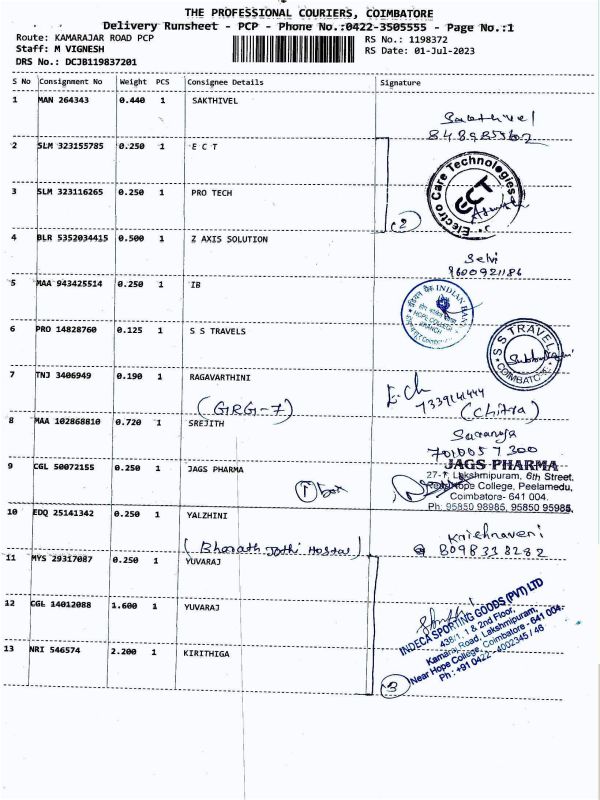 THE PROFESSIONAL COURIERS, COIMBATORE
Delivery Runsheet - PCP - Phone No.:0422-3505555 - Page No.:1
Route: KAMARAJAR ROAD PCP RS No.: 1198372
Staff: M VIGNESH RS Date: 01-Jul-2023
DRS No.: DCJB119837201
S No Consignment No Weight PCS Consignee Details Signature
1 MAN 264343 0.440 1 SAKTHIVEL
Sakthivel
2 SLM 323155785 0.250 1 E C T
Electro Care Technologies
ECT
3 SLM 323116265 0.250 1 PRO TECH
2
4 BLR 5352034415 0.500 1 Z AXIS SOLUTION
Selvi
9600921186
5 MAA 943425514 0.250 1 IB
इंडियन बैंक INDIAN BANK
HOPE COLLEGE
BRANCH
6 PRO 14828760 0.125 1 S S TRAVELS
S S TRAVELS
COIMBATORE
7 TNJ 3406949 0.190 1 RAGAVARTHINI
(GRG-7) (Chitra)
8 MAA 102868810 0.720 1 SREJITH
7010057300
9 CGL 50072155 0.250 1 JAGS PHARMA
JAGS PHARMA
27-F, Lakshmipuram, 6th Street,
Near Hope College, Peelamedu,
Coimbatore- 641 004.
Ph: 95850 98985, 95850 95985,
1 box
10 EDQ 25141342 0.250 1 YALZHINI
Krishnaveni
(Bharath Jothi Hostal) 8098338282
11 MYS 29317087 0.250 1 YUVARAJ
12 CGL 14012088 1.600 1 YUVARAJ
INDECA SPORTING GOODS (PVT) LTD
438/1, 1 & 2nd Floor,
Kamaraj Road, Lakshmipuram,
Near Hope College, Coimbatore - 641 004.
Ph : +91 0422 - 4002345 / 46
13 NRI 546574 2.200 1 KIRITHIGA
3